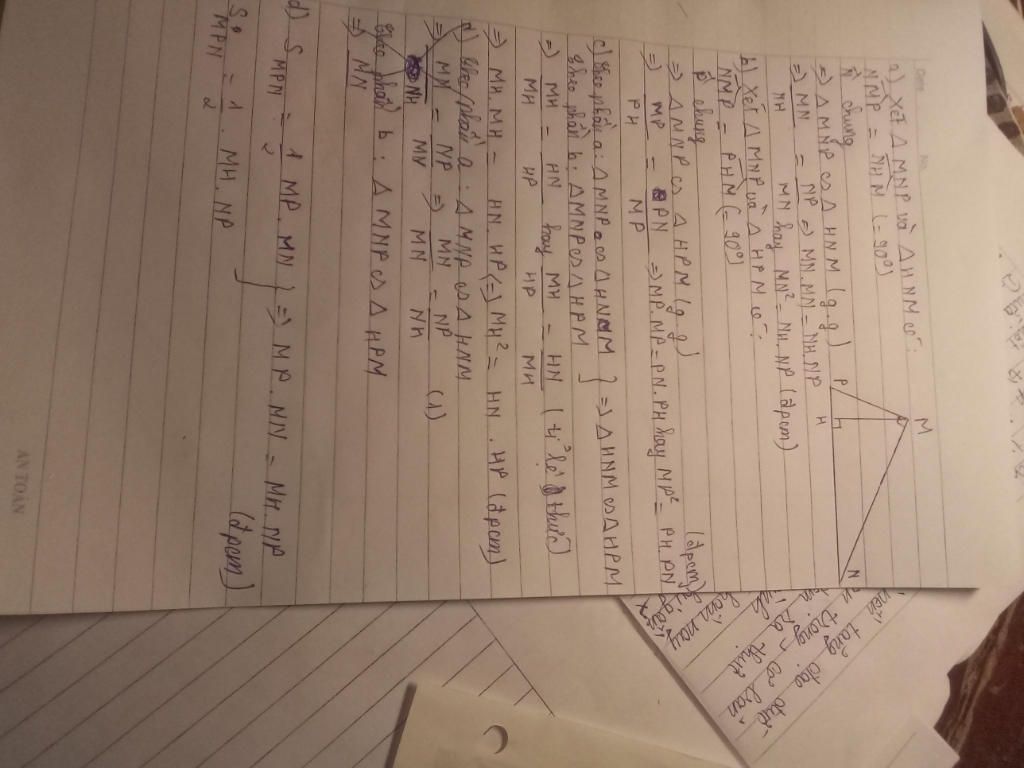 Date No
M
P
H
N
a) Xét Δ MNP và Δ HNM có:
NMP = NHN (= 90°)
N chung
=) Δ MNP ∽ Δ HNM (g.g)
=) MN/NH = NP/MN =) MN.MN = NH.NP
hay MN² = NH.NP (đpcm)
b) Xét Δ MNP và Δ HPM có:
NMP = PHN (= 90°)
P chung
=) Δ MNP ∽ Δ HPM (g.g)
=) MP/PH = PN/MP =) MP.MP = PN.PH hay MP² = PH.PN (đpcm)
c) theo phần a: Δ MNP ∽ Δ HNM } =) Δ HNM ∽ Δ HPM
theo phần b: Δ MNP ∽ Δ HPM
=) MH/MH = HN/HP hay MH/HP = HN/MH (tỉ lệ thức)
=) MH.MH = HN.HP (=) MH² = HN.HP (đpcm)
theo phần a: Δ MNP ∽ Δ HNM
=) MN/NH = NP/MN =) MN/MN = NP/NH (1)
theo phần b: Δ MNP ∽ Δ HPM
=) MN
d) S MPN = 1/2 MP.MN } =) MP.MN = MH.NP
S MPN = 1/2 . MH.NP (đpcm)
AN TOÀN